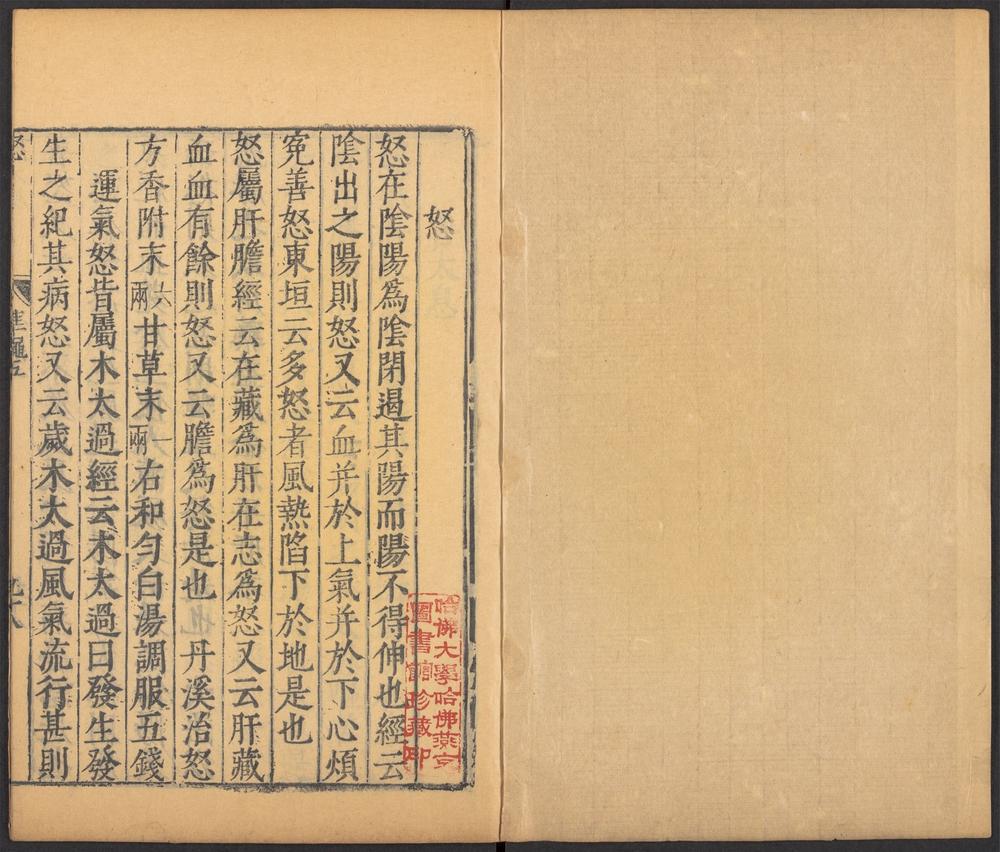 怒
怒在陰陽爲陰閉遏其陽而陽不得伸也經云
陰出之陽則怒又云血并於上氣并於下心煩
寃善怒東垣云多怒者風熱陷下於地是也
怒屬肝膽經云在藏爲肝在志爲怒又云肝藏
血血有餘則怒又云膽爲怒是也 丹溪治怒
方香附末六兩甘草末一兩右和勻白湯調服五錢
運氣怒皆屬木太過經云木太過曰發生發
生之紀其病怒又云歲木太過風氣流行甚則
怒
準繩五
九十八
哈佛大學哈佛燕京
圖書館珍藏印